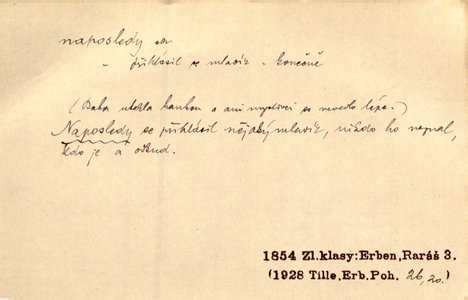 naposledy adv.
- přihlásil se mladík - konečně
(Baba utekla hanbou a ani myslivci se nevedlo lépe.)
Naposledy se přihlásil nějaký mladík, nikdo ho neznal,
kdo je a odkud.
1854 Zl.klasy:Erben,Raráš 3.
(1928 Tille,Erb.Poh. 26,20.)